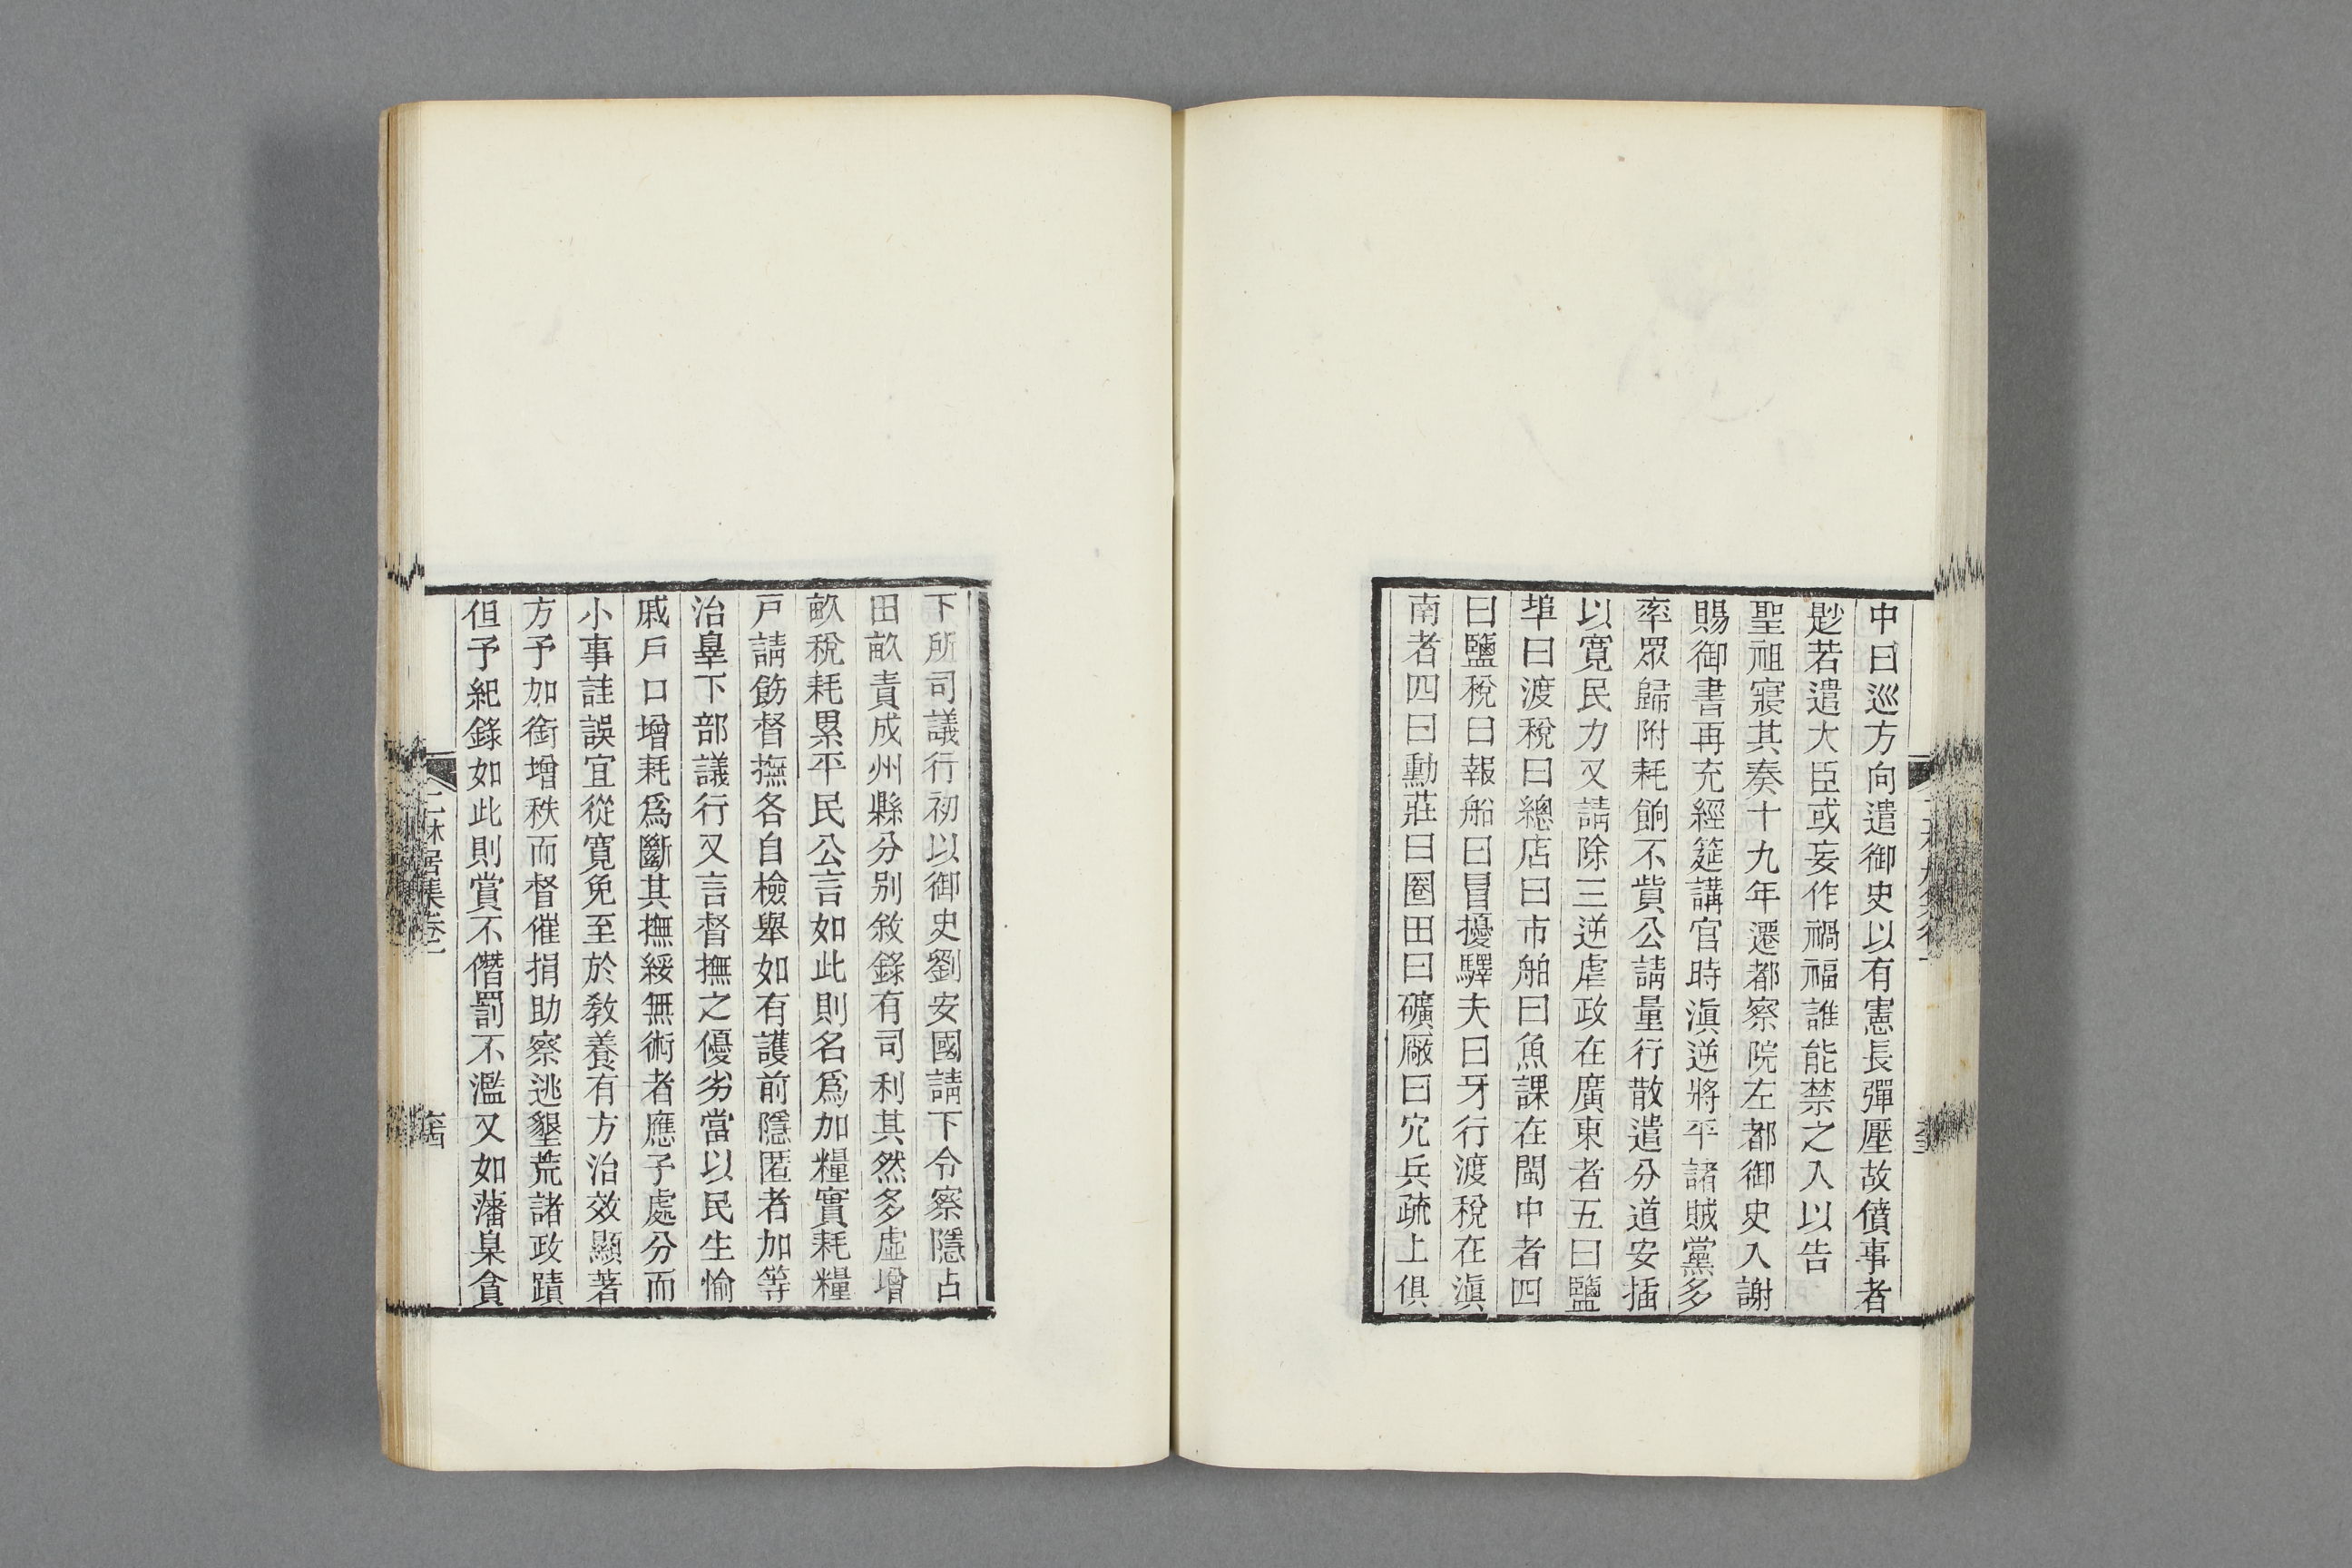 中曰巡方向遣御史以有憲長彈壓故僨事者
尟若遣大臣或妄作禍福誰能禁之入以告
聖祖寢其奏十九年遷都察院左都御史入謝
賜御書再充經筵講官時滇逆將平諸賊黨多
率眾歸附耗餉不貲公請量行散遣分道安插
以寬民力又請除三逆虐政在廣東者五曰鹽
埠曰渡稅曰總店曰市舶曰魚課在閩中者四
曰鹽稅曰報船曰冒擾驛夫曰牙行渡稅在滇
南者四曰勳莊曰圈田曰礦厰曰冗兵疏上俱
下所司議行初以御史劉安國請下令察隱占
田畝責成州縣分别敘錄有司利其然多虛增
畝稅耗累平民公言如此則名爲加糧實耗糧
戸請飭督撫各自檢舉如有護前隱匿者加等
治辠下部議行又言督撫之優劣當以民生愉
戚戸口增耗爲斷其撫綏無術者應予處分而
小事詿誤宜從寬免至於敎養有方治效顯著
方予加銜增秩而督催捐助察逃墾荒諸政蹟
但予紀錄如此則賞不僭罰不濫又如藩臬貪
二林居集卷